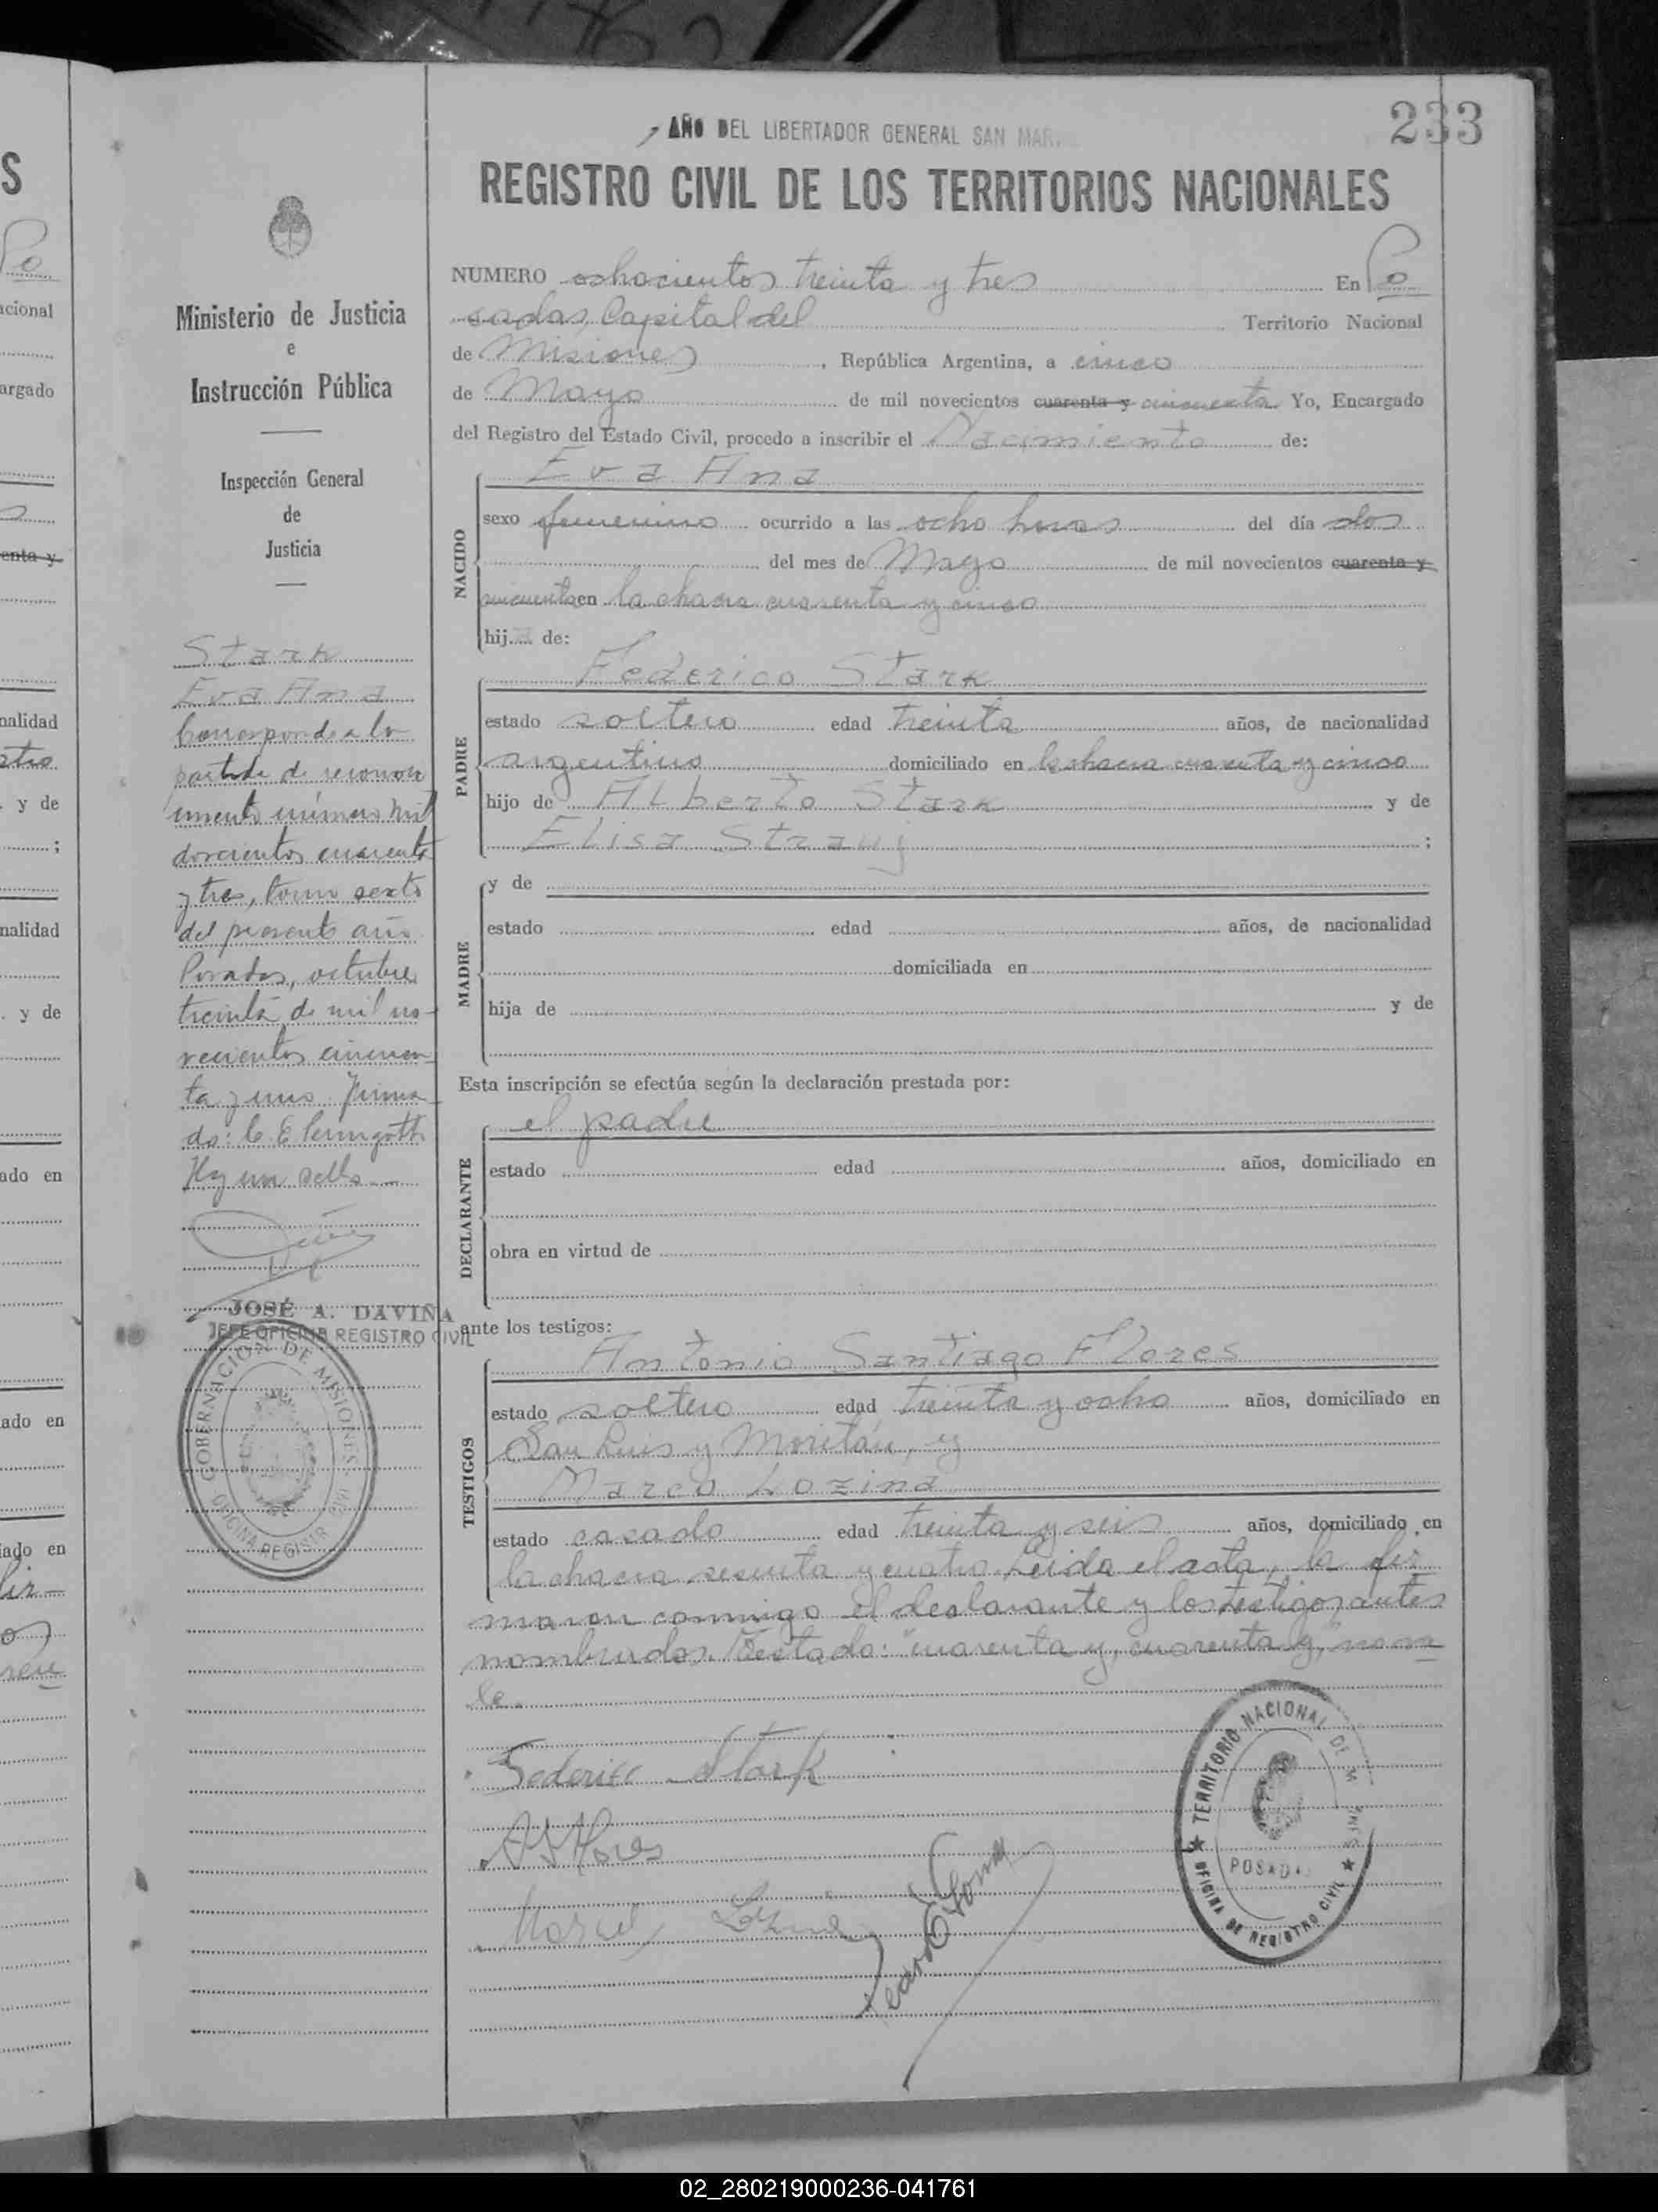 233
AÑO DEL LIBERTADOR GENERAL SAN MAR
REGISTRO CIVIL DE LOS TERRITORIOS NACIONALES
NUMERO oshocientos treinta y tres En Po
sadas, Capital del Territorio Nacional
de Misiones, República Argentina, a cinco
de Mayo de mil novecientos cuarenta y cincuenta Yo, Encargado
del Registro del Estado Civil, procedo a inscribir el Nacimiento de:
NACIDO
Eva Ana
sexo femenino ocurrido a las ocho horas del día dos
del mes de Mayo de mil novecientos cuarenta y
cincuenta en la chacra cuarenta y cinco
hija de:
PADRE
Federico Stark
estado soltero edad treinta años, de nacionalidad
argentino domiciliado en la chacra cuarenta y cinco
hijo de Alberto Stark y de
Elisa ;
MADRE
y de
estado edad años, de nacionalidad
domiciliada en
hija de y de
Esta inscripción se efectúa según la declaración prestada por:
DECLARANTE
el padre
estado edad años, domiciliado en
obra en virtud de
ante los testigos:
TESTIGOS
Antonio Santiago Flores
estado soltero edad treinta y ocho años, domiciliado en
San Luis y Moritán, y
Marco Lozina
estado casado edad treinta y seis años, domiciliado en
la chacra sesenta y cuatro. Leida el acta, la fir
maron conmigo el declarante y los testigos antes
nombrados. Testado: "cuarenta y, cuarenta y," no va
le.
Federico Stark
A S Flores
TERRITORIO NACIONAL DE M NES
POSADA
OFICINA DE REGISTRO CIVIL
Ministerio de Justicia
e
Instrucción Pública
Inspección General
de
Justicia
Stark
Eva Ana
Corresponde a la
partida de reconoci
miento número mil
doscientos cuarenta
y tres, tomo sexto
del presente año
Posadas, octubre
treinta de mil no-
vecientos cincuen-
ta y uno. Firma-
do: C. E.
Hay un sello.
JOSÉ A. DAVIÑA
JEFE OFICINA REGISTRO CIVIL
GOBERNACION DE MISIONES
OFICINA REGISTR
S
Po
acional
argado
enta y
nalidad
y de
;
nalidad
y de
ado en
ado en
iado en
fir-
02_280219000236-041761